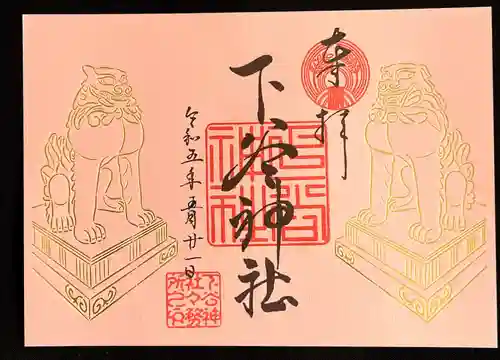 奉拝
下谷神社
令和五年五月廿一日
下谷神社